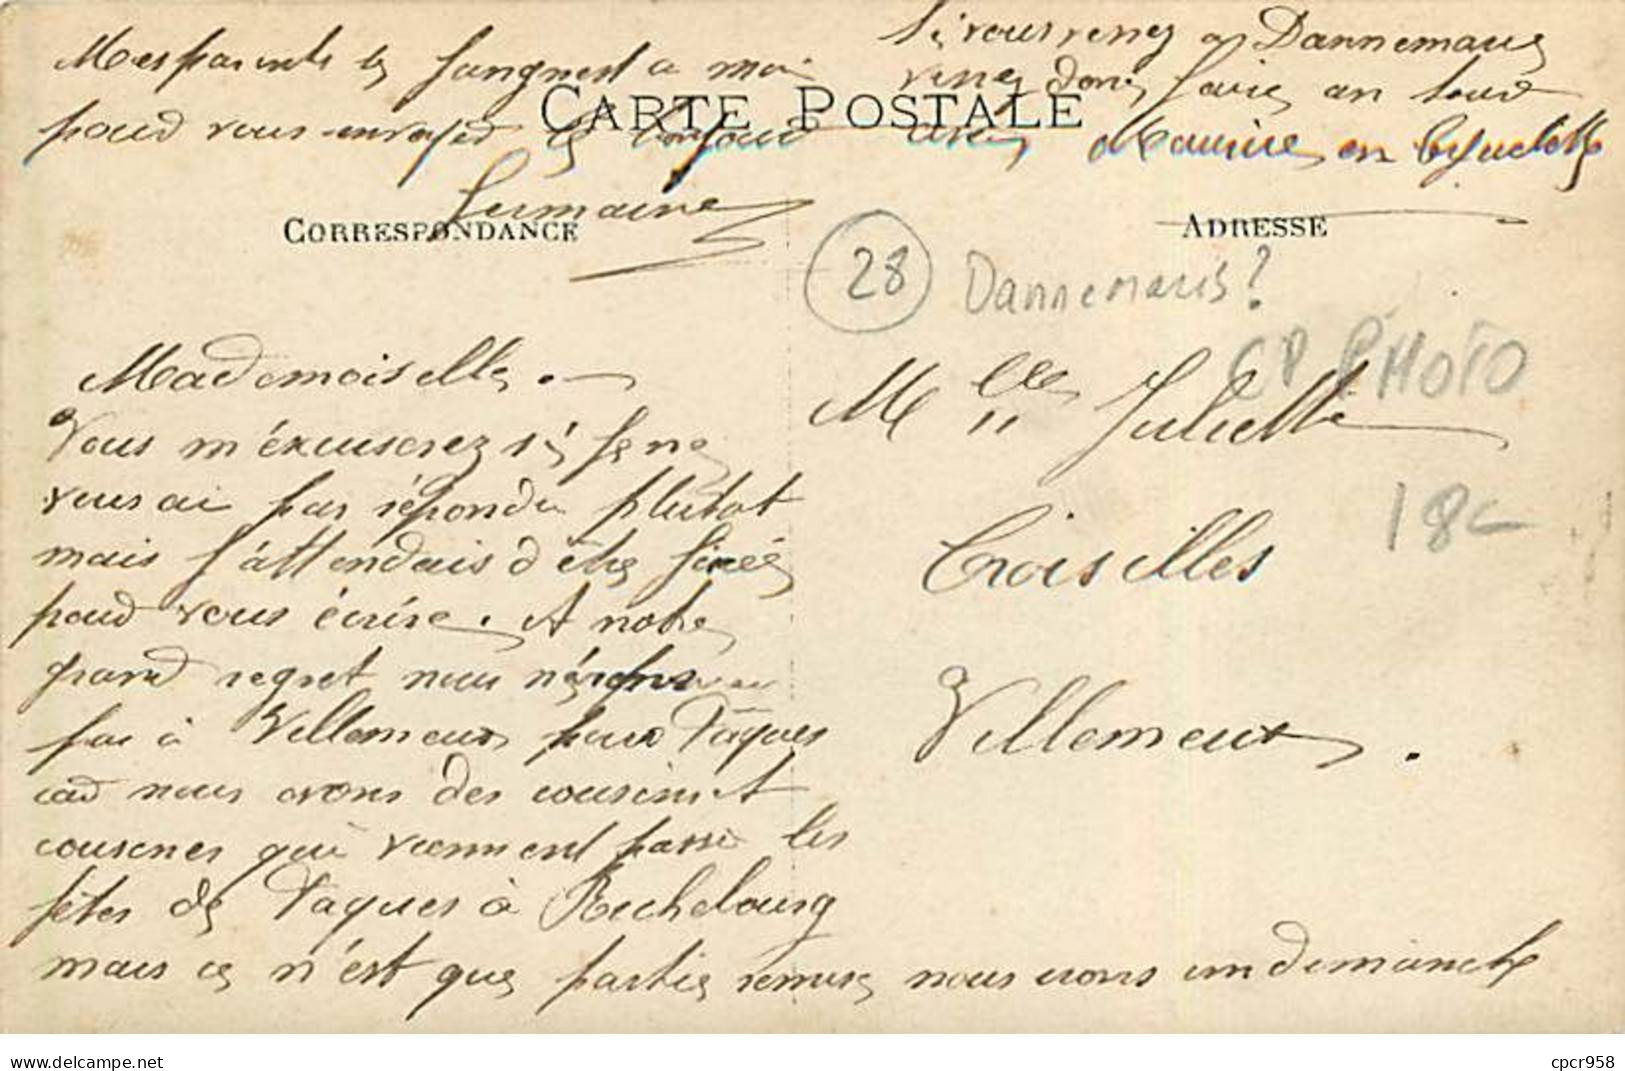 Mes parents se joignent a moi
pour vous envoyer le bonjour
Germaine
Si vous venez a Dannemarie
venez donc faire un tour
avec Maurice en bisyclette
CARTE POSTALE
CORRESPONDANCE
ADRESSE
28 Dannemaris?
CP PHOTO
18c
Mademoiselle.
Vous m'éxcuserez si je ne
vous ai pas répondu plutot
mais j'attendais d'être fixée
pour vous écrire. A notre
grand regret nous n'irons
pas à Villemeux pour Pâques
car nous avons des cousins et
cousines qui viennent passer les
fêtes de Paques à Rechebourg
mais ce n'est que partie remise nous irons un dimanche
Melle Juliette
Croisilles
Villemeux.
www.delcampe.net
cpcr958